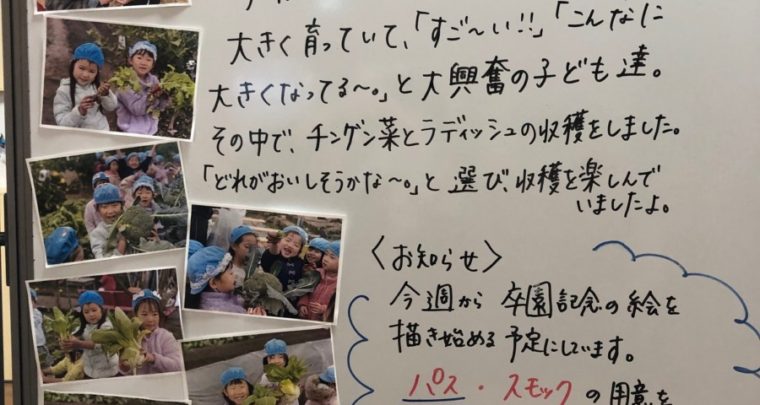 大きく育っていて、「すご～い!!」「こんなに
大きくなってる～。」と大興奮の子ども達。
その中で、チンゲン菜とラディッシュの収穫をしました。
「どれがおいしそうかな～。」と選び、収穫を楽しんで
いましたよ。
〈お知らせ〉
今週から卒園記念の絵を
描き始める予定にしています。
パス・スモックの用意を